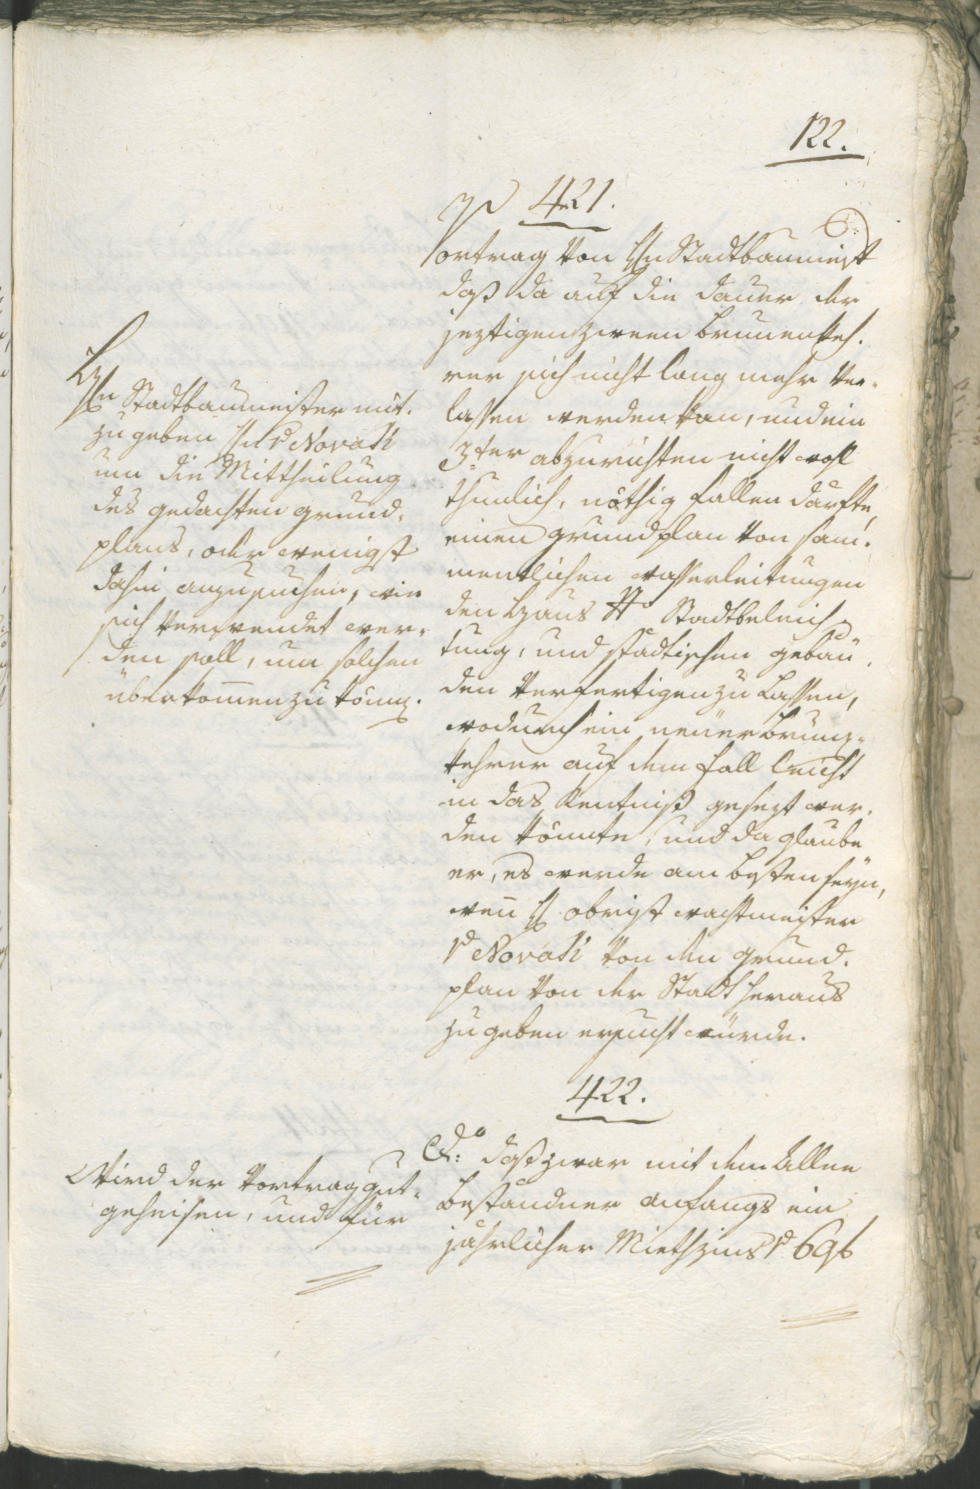 122.
421.
Vortrag von H Stadtbaumeist
daß da auf die dauer der
jeztigen zween brunenkeh-
rer sich nicht lang mehr ver-
lassen werden kan, und ein
3ter abzurichten nicht wohl
thunlich, nöthig fallen därfte,
einen grundplan von sam-
mentlichen wasserleitungen
den Haus Stadtbeleich-
tung, und städtischen gebäu-
den verfertigen zu lassen,
wodurch ein neüer brunn-
kehrer auf dem fall leicht
in das kentniß gesezt wer-
den könnte, und da glaube
er, es werde am besten seyn,
wen H obrist wachtmeister
v Novati von den grund-
plan von der Stadt heraus
zu geben ersucht würde.
Hn Stadtbaumeister mit-
zugeben H v Novati
um die Mittheilung
des gedachten grund-
plans, oder wenigst
dahin anzusuchen, wie
sich verwendet wer-
den soll, um solchen
überkomen zu könn.
422.
do: daß zwar mit dem
beständner anfangs ein
jährlicher Miethzins v 69f
Wird der Vortrag gut-
geheisen, und für